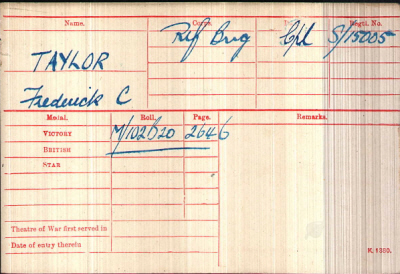 Name. Corps. Regtl. No.
Rif Brig Cpl S/15005
TAYLOR
Frederick C
Medal. Roll. Page. Remarks.
VICTORY M/102B20 2646
BRITISH
STAR
Theatre of War first served in
Date of entry therein
K. 1380.